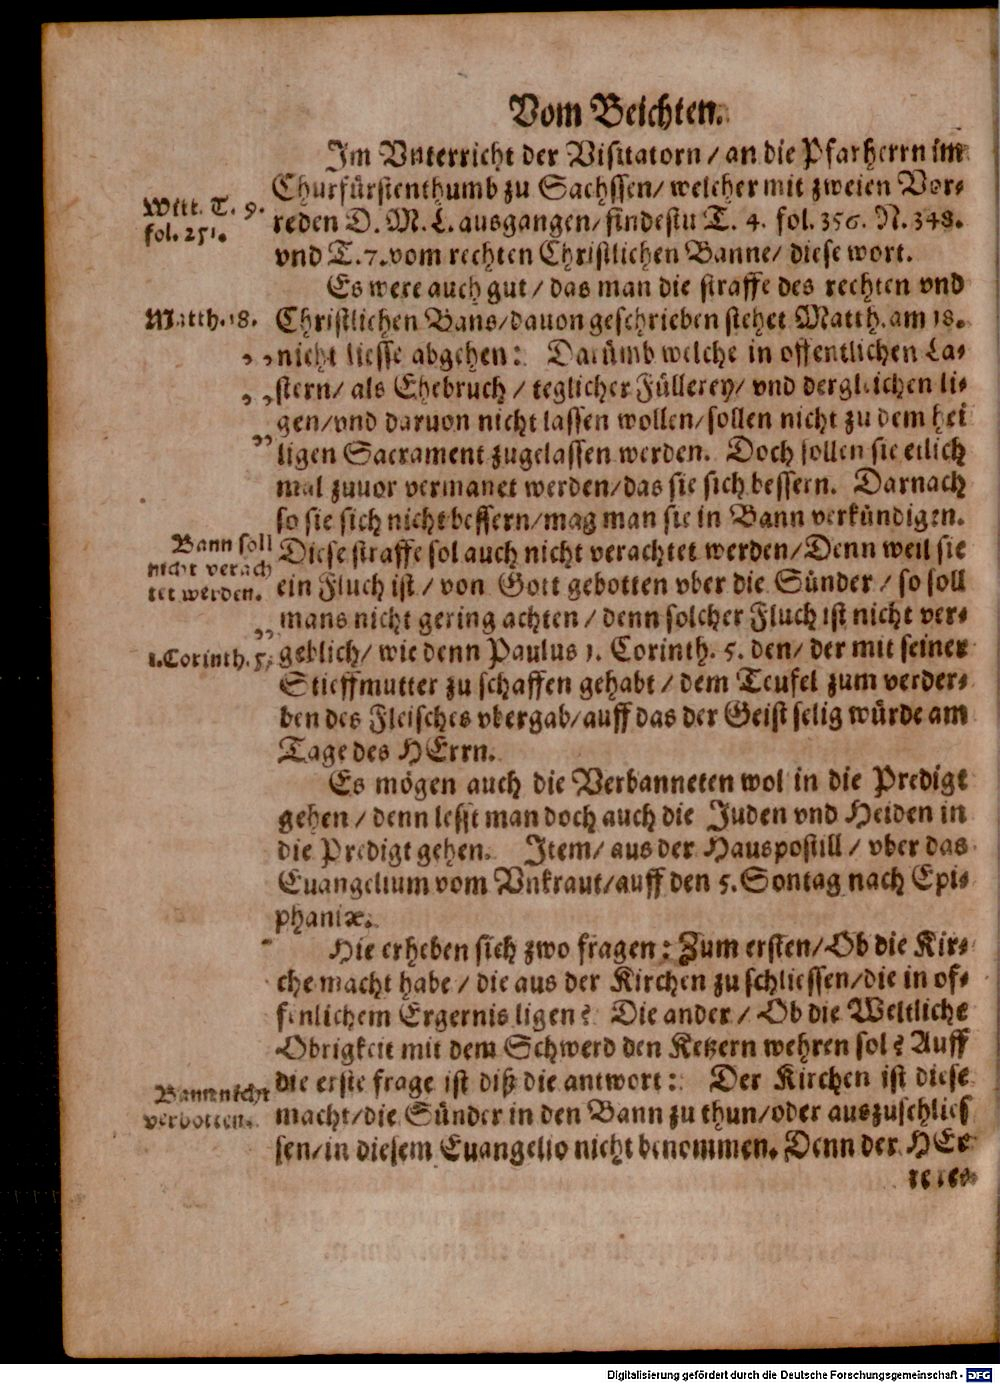 Vom Beichten.
Im Vnterricht der Visitatorn / an die Pfarherrn im
Churfürstenthumb zu Sachssen/ welcher mit zweien Vor-
Witt. T. 9.
fol. 251.
reden D. M. L. ausgangen/ findestu T. 4. fol. 356. N. 348.
vnd T. 7. vom rechten Christlichen Banne/ diese wort.
Es were auch gut / das man die straffe des rechten vnd
Matth. 18.
Christlichen Bans/ dauon geschrieben stehet Matth. am 18.
nicht liesse abgehen: Darümb welche in offentlichen La-
stern/ als Ehebruch / teglicher Füllerey/ vnd dergleichen li-
gen/ vnd daruon nicht lassen wollen/ sollen nicht zu dem hei
ligen Sacrament zugelassen werden. Doch sollen sie etlich
mal zuuor vermanet werden/ das sie sich bessern. Darnach
so sie sich nicht bessern/ mag man sie in Bann verkündigen.
Bann soll
nicht verach
tet werden.
Diese straffe sol auch nicht verachtet werden/ Denn weil sie
ein Fluch ist / von Gott gebotten vber die Sünder / so soll
mans nicht gering achten / denn solcher Fluch ist nicht ver-
1. Corinth. 5.
geblich/ wie denn Paulus 1. Corinth. 5. den/ der mit seiner
Stieffmutter zu schaffen gehabt / dem Teufel zum verder-
ben des Fleisches vbergab/ auff das der Geist selig würde am
Tage des HErrn.
Es mögen auch die Verbanneten wol in die Predigt
gehen / denn lesst man doch auch die Juden vnd Heiden in
die Predigt gehen. Item/ aus der Hauspostill / vber das
Euangelium vom Vnkraut/ auff den 5. Sontag nach Epi-
phaniæ.
Hie erheben sich zwo fragen: Zum ersten/ Ob die Kir-
che macht habe / die aus der Kirchen zu schliessen/ die in of-
fenlichem Ergernis ligen? Die ander / Ob die Weltliche
Obrigkeit mit dem Schwerd den Ketzern wehren sol? Auff
die erste frage ist diß die antwort: Der Kirchen ist diese
Bann nicht
verbotten.
macht/ die Sünder in den Bann zu thun/ oder auszuschlies
sen/ in diesem Euangelio nicht benommen. Denn der HEr
Digitalisierung gefördert durch die Deutsche Forschungsgemeinschaft - DFG